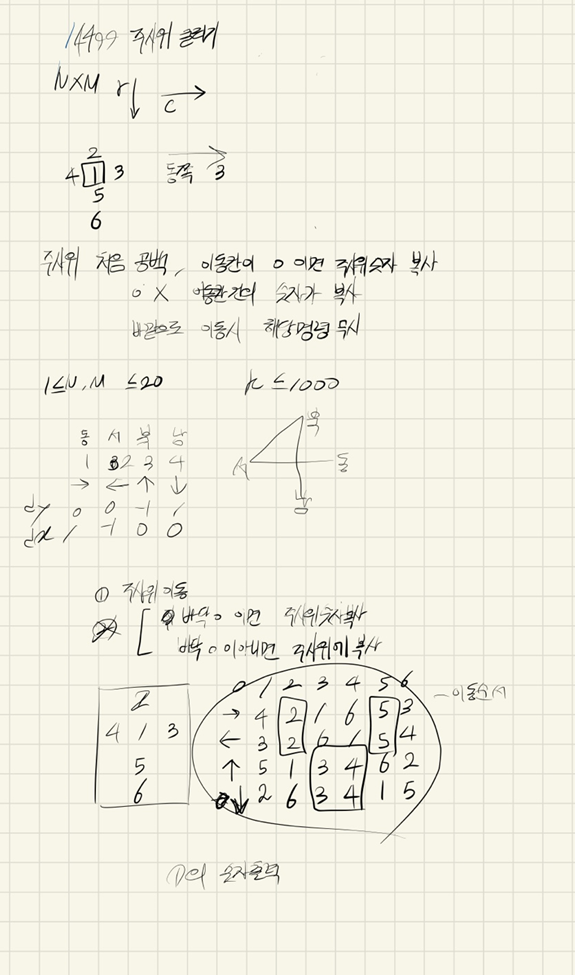 14499 주사위 굴리기
N×M r↓ c→
2
4 1 3 동쪽 3
5
6
주사위 처음 공백, 이동칸이 0 이면 주사위숫자 복사
0 X 이동칸칸의 숫자가 복사
바깥으로 이동시 해당명령 무시
1≤N,M ≤20 k ≤1000
동 서 북 남
1 2 3 4
→ ← ↑ ↓
dy 0 0 -1 1
dx 1 -1 0 0
북
서 동
남
① 주사위 이동
바닥 0 이면 주사위숫자복사
바닥 0 이아니면 주사위에 복사
2
4 1 3
5
6
0 1 2 3 4 5 6
→ 4 2 1 6 5 3 이동순서
← 3 2 6 1 5 4
↑ 5 1 3 4 6 2
↓ 2 6 3 4 1 5
숫자출력